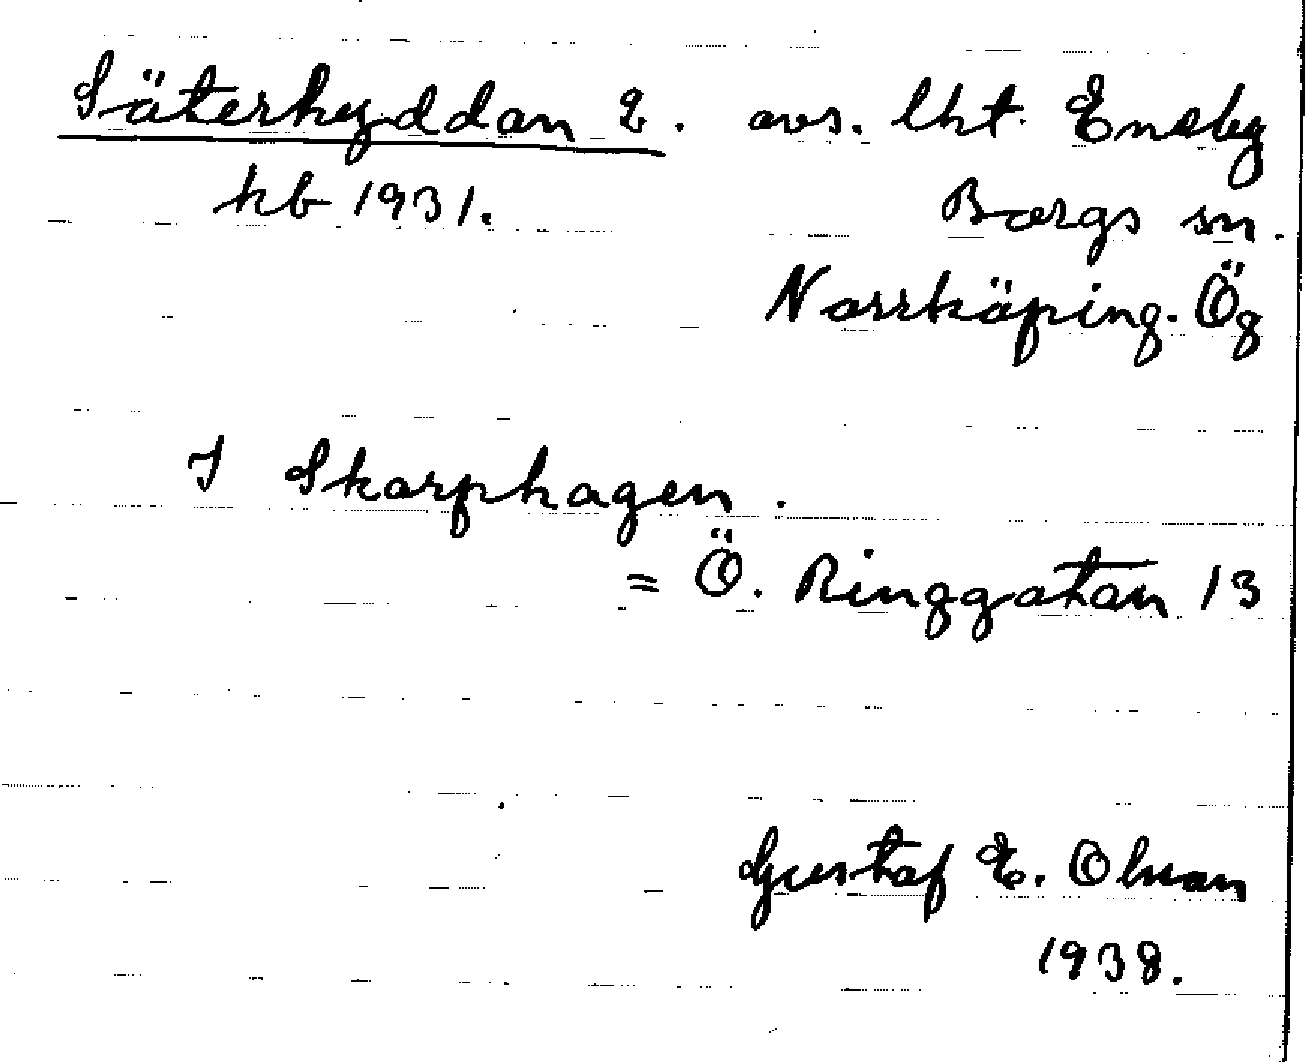 Säterhyddan 2. avs. lht. Eneby
kb 1931. Borgs sn.
Norrköping. Ög
I Skarphagen.
= Ö. Ringgatan 13
Gustaf E. Olsson
1938.